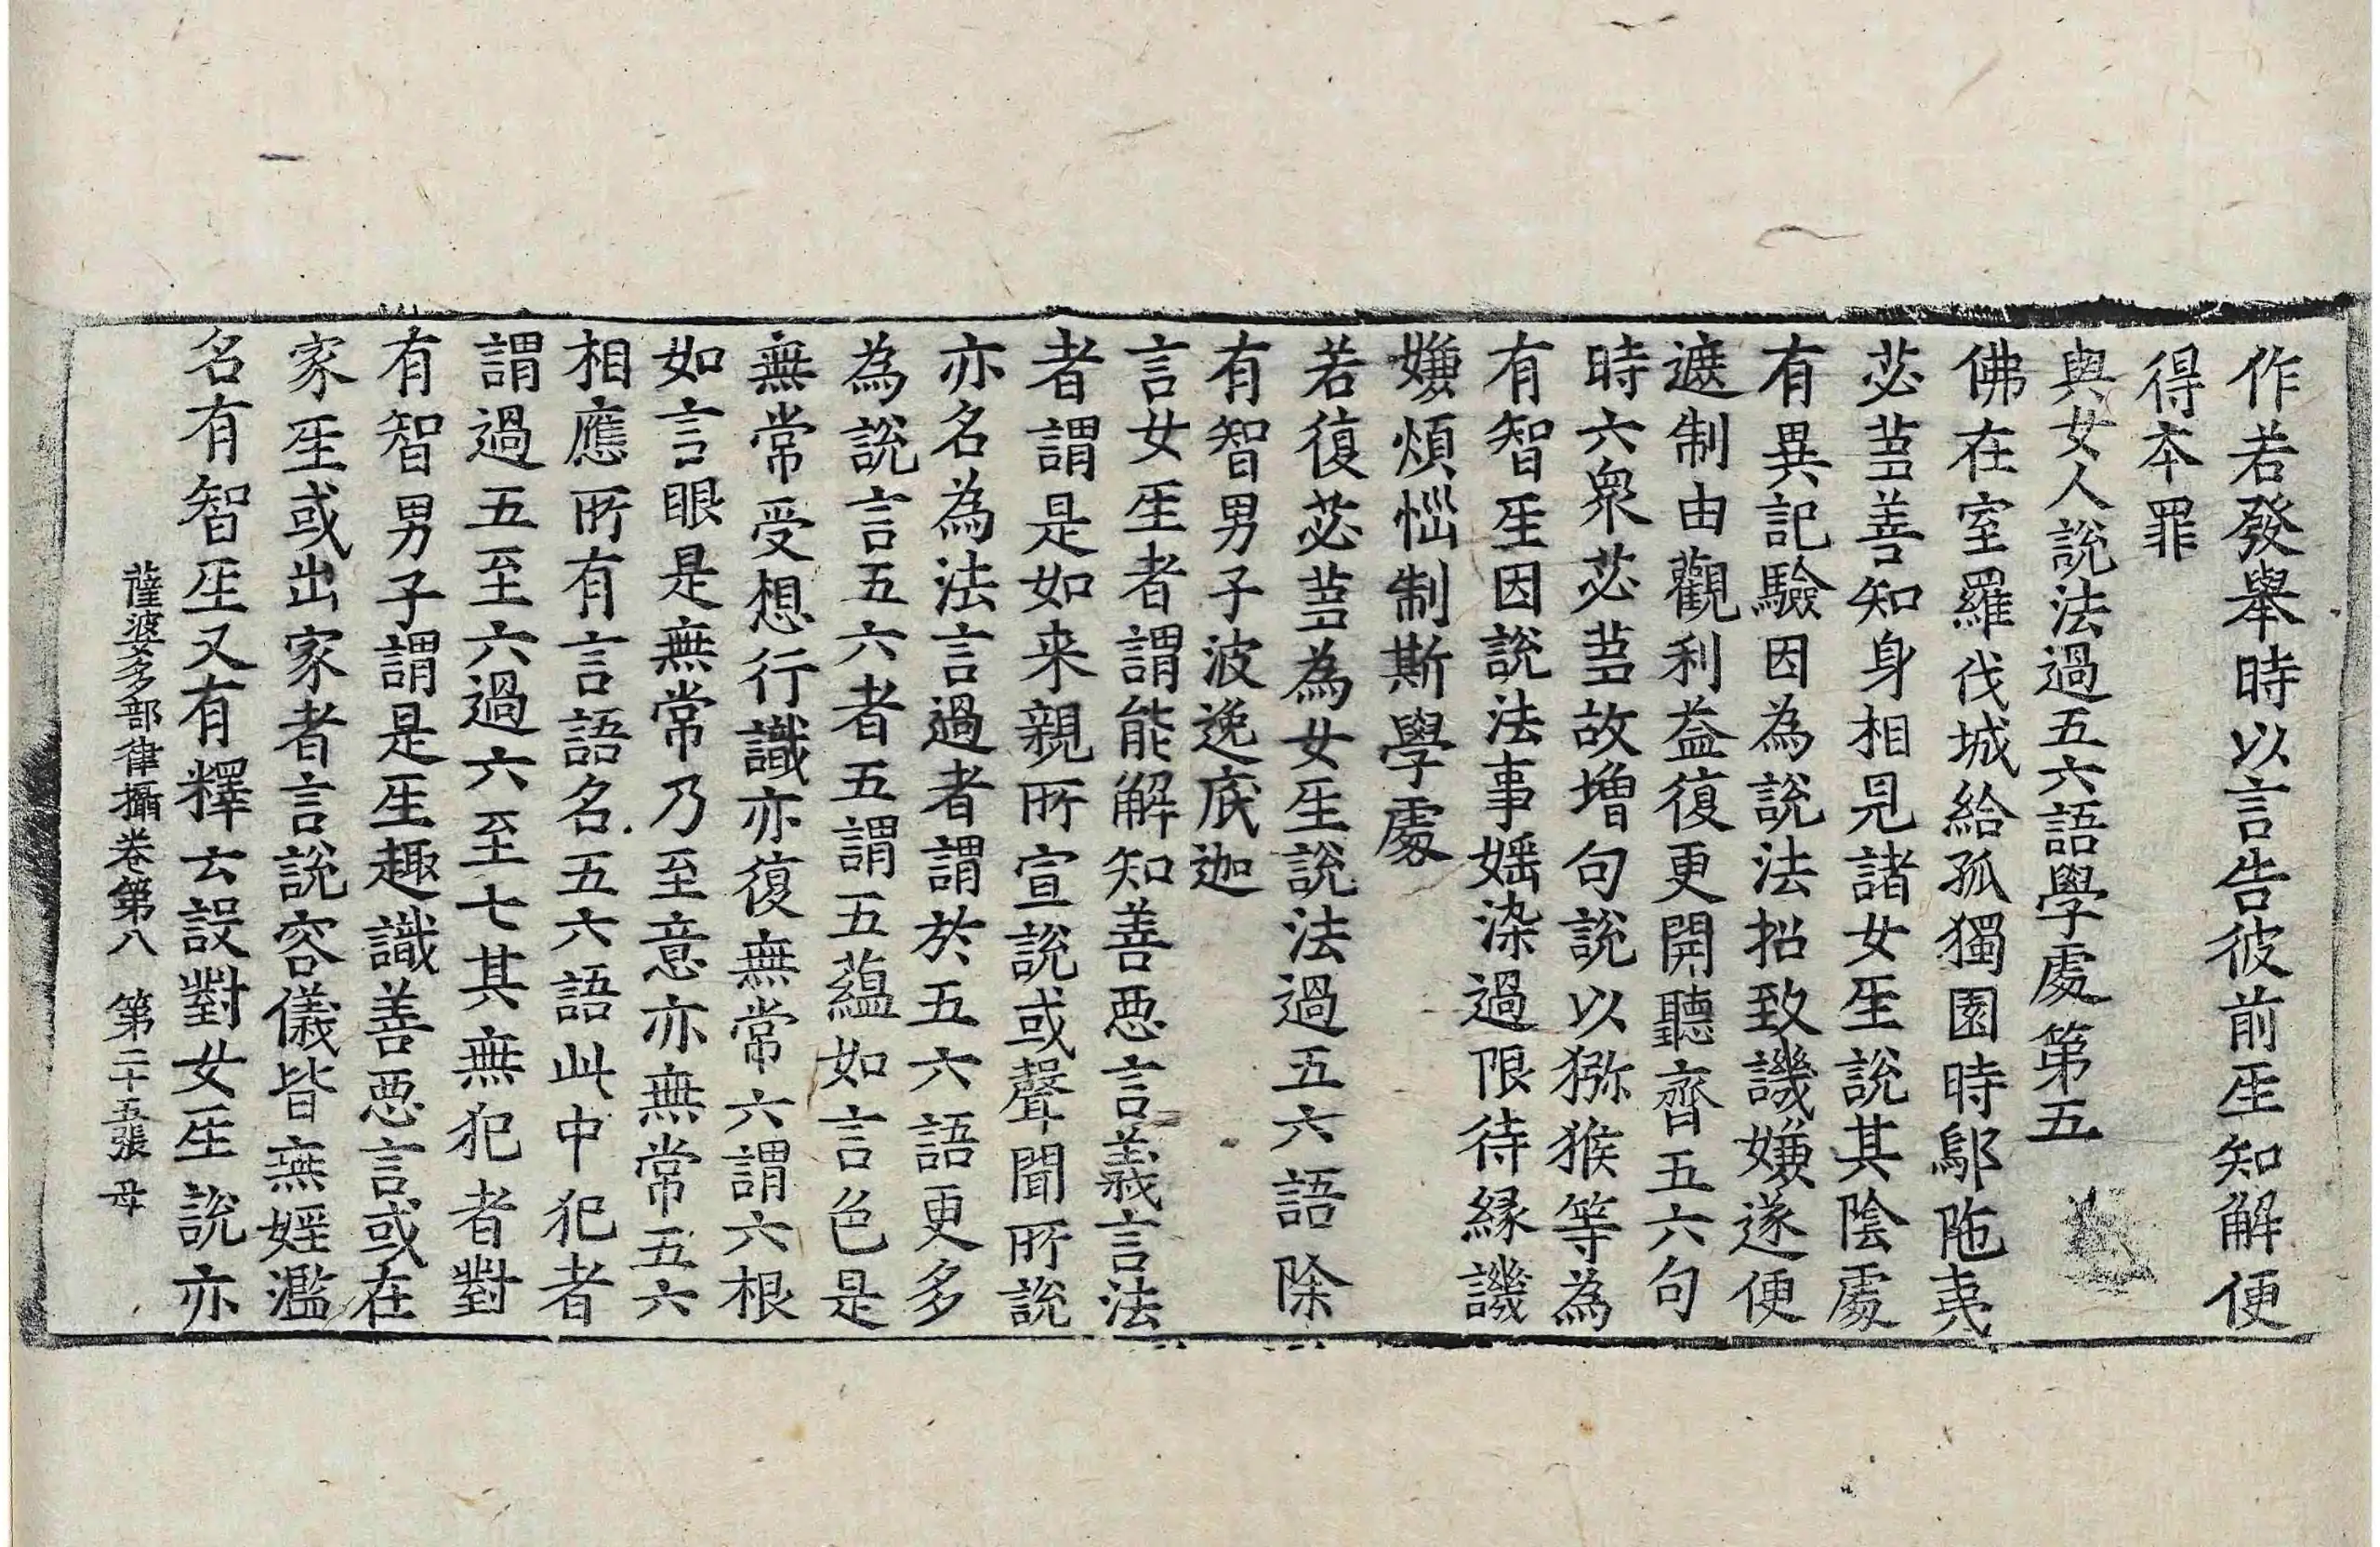 作若發舉時以言告彼前𤯔知解便
得本罪
與女人說法過五六語學處第五
佛在室羅伐城給孤獨園時鄔陁夷
苾蒭善知身相見諸女𤯔說其陰處
有異記驗因為說法招致譏嫌遂便
遮制由觀利益復更開聽齊五六句
時六衆苾蒭故增句說以猕猴等為
有智𤯔因說法事婬染過限待緣譏
嫌煩惱制斯學處
若復苾蒭為女𤯔說法過五六語除
有智男子波逸底迦
言女𤯔者謂能解知善惡言義言法
者謂是如来親所宣說或聲聞所說
亦名為法言過者謂於五六語更多
為說言五六者五謂五蘊如言色是
無常受想行識亦復無常六謂六根
如言眼是無常乃至意亦無常五六
相應所有言語名五六語此中犯者
謂過五至六過六至七其無犯者對
有智男子謂是𤯔趣識善惡言或在
家𤯔或出家者言說容儀皆無婬濫
名有智𤯔又有釋云設對女𤯔說亦
薩婆多部律攝卷第八 第二十五張 母